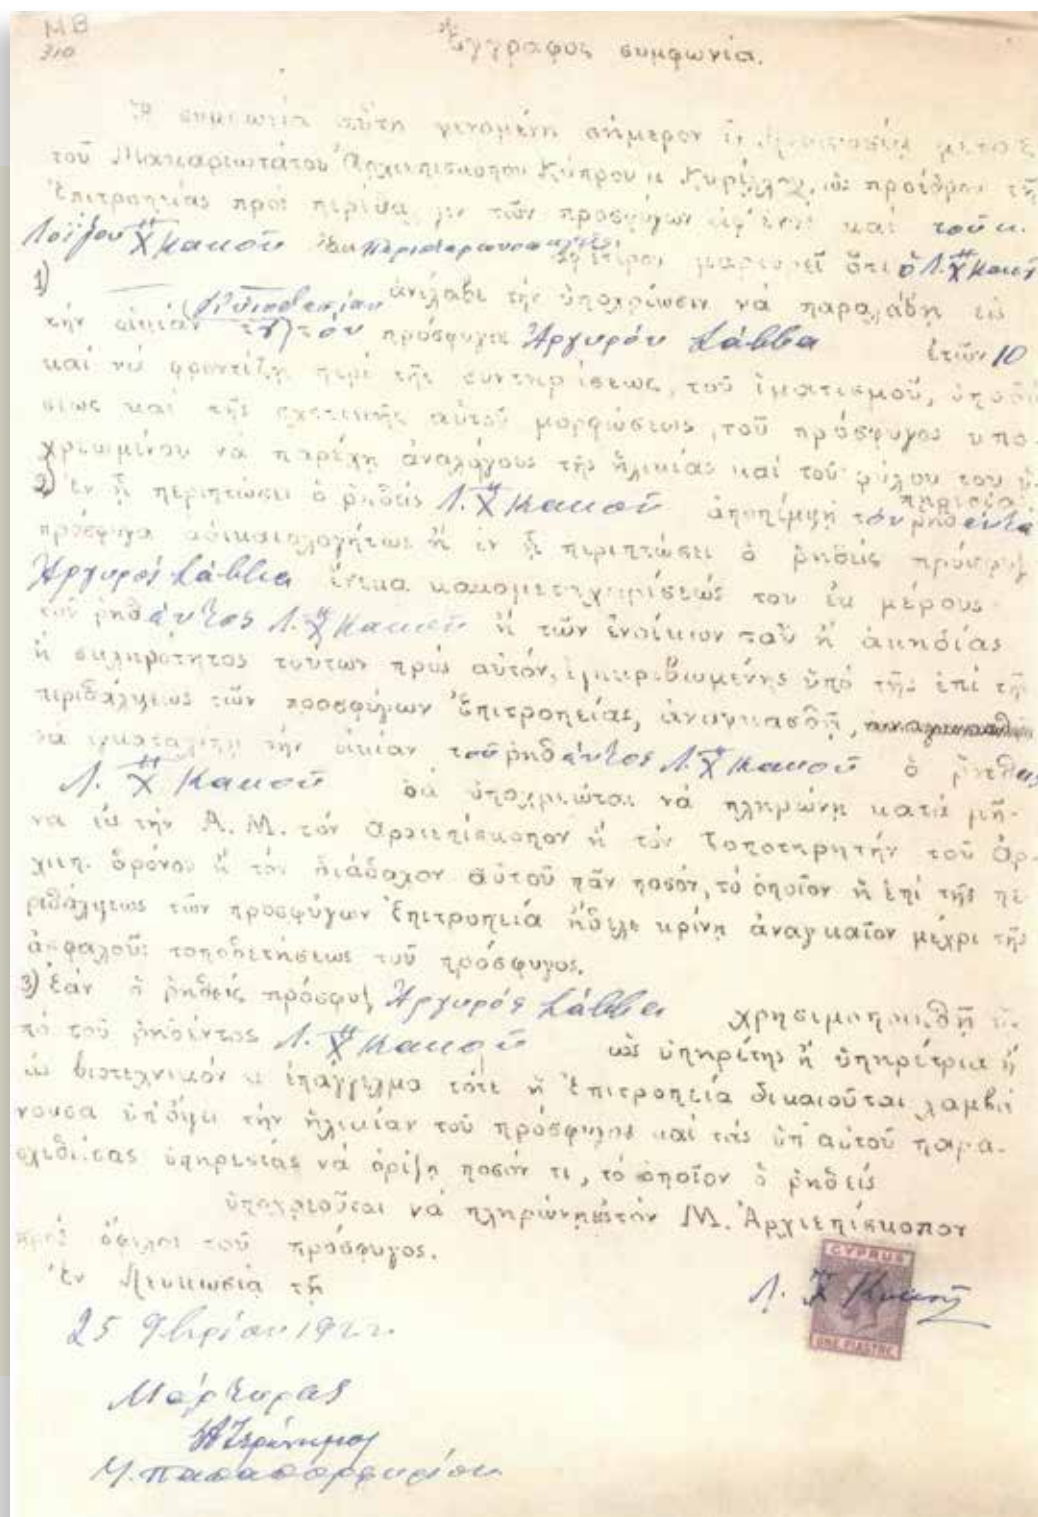 ΜΒ
310
Ἔγγραφος συμφωνία.
Ἡ συμφωνία αὕτη γενομένη σήμερον ἐν Λευκωσίᾳ μεταξὺ
τοῦ Μακαριωτάτου Ἀρχιεπισκόπου Κύπρου κ Κυρίλλου, ὡς προέδρου τῆς
Ἐπιτροπείας πρὸς περίθαλψιν τῶν προσφύγων ἀφ' ἑνὸς καὶ τοῦ κ.
Λοΐζου Χ" Κακοῦ ἐκ Περιστερωνοπηγῆς
ἀφ' ἑτέρου μαρτυρεῖ ὅτι ὁ Λ. Χ" Κακῆς
1) ἀνέλαβε τὴν ὑποχρέωσιν νὰ παραλάβῃ εἰς
τὴν οἰκίαν του τὸν πρόσφυγα Ἀργυρόν Σάββα ἐτῶν 10
καὶ νὰ φροντίζῃ περὶ τῆς συντηρήσεως, τοῦ ἱματισμοῦ, ὑποδέ
σεως καὶ τῆς σχετικῆς αὐτοῦ μορφώσεως, τοῦ πρόσφυγος υπο-
χρεωμένου νὰ παρέχῃ ἀναλόγους τῆς ἡλικίας καὶ τοῦ φύλου του ὑ-
πηρεσίας
2) ἐν ᾗ περιπτώσει ὁ ῥηθεὶς Λ. Χ" Κακοῦ ἀποπέμψῃ τὸν ῥηθέντα
πρόσφυγα ἀδικαιολογήτως ἢ ἐν ᾗ περιπτώσει ὁ ῥηθεὶς πρόσφυξ
Ἀργυρός Σάββα ἕνεκα κακομεταχειρίσεώς του ἐκ μέρους
τοῦ ῥηθέντος Λ. Χ" Κακοῦ ἢ τῶν ἐνοίκων τοῦ ἢ ἀκηδίας
ἢ σκληρότητος τούτων πρὸς αὐτόν, ἐξηκριβωμένης ὑπὸ τῆς ἐπὶ τῆς
περιθάλψεως τῶν προσφύγων Ἐπιτροπείας, ἀναγκασθῇ,
νὰ ἐγκαταλίπῃ τὴν οἰκίαν τοῦ ῥηθέντος Λ. Χ" Κακοῦ ὁ ῥηθεὶς
Λ. Χ" Κακοῦ θὰ ὑποχρεῶται νὰ πληρώνῃ κατὰ μῆ-
να εἰς τὴν Α. Μ. τὸν Ἀρχιεπίσκοπον ἢ τὸν Τοποτηρητήν τοῦ Ἀρ-
χιεπ. θρόνου ἢ τὸν διάδοχον αὐτοῦ πᾶν ποσόν, τὸ ὁποῖον ἡ ἐπὶ τῆς πε-
ριθάλψεως τῶν προσφύγων Ἐπιτροπεία ἤθελε κρίνῃ ἀναγκαῖον μέχρι τῆς
ἀσφαλοῦς τοποθετήσεως τοῦ πρόσφυγος.
3) ἐάν ὁ ῥηθείς πρόσφυξ Ἀργυρός Σάββα χρησιμοποιηθῇ ὑ-
πό τοῦ ῥηθέντος Λ. Χ" Κακοῦ ὡς ὑπηρέτης ἢ ὑπηρέτρια ἢ
εἰς βιοτεχνικόν τι ἐπάγγελμα τότε ἡ Ἐπιτροπεία δικαιοῦται λαμβά
νουσα ὑπ' ὄψει τὴν ἡλικίαν τοῦ πρόσφυγος καὶ τὰς ὑπ' αὐτοῦ παρα-
σχεθείσας ὑπηρεσίας νὰ ὁρίζῃ ποσόν τι, τὸ ὁποῖον ὁ ῥηθείς
ὑποχρεοῦται νὰ πληρώνῃ εἰς τὸν Μ. Ἀρχιεπίσκοπον
πρὸς ὄφελος τοῦ πρόσφυγος.
Ἐν Λευκωσίᾳ τῇ
25 9βρίου 1922
Λ. Χ" Κακῆς
CYPRUS
ONE PIASTRE
Μάρτυρες
Ἱερώνυμος
Μ. Παπαπορφυρίου